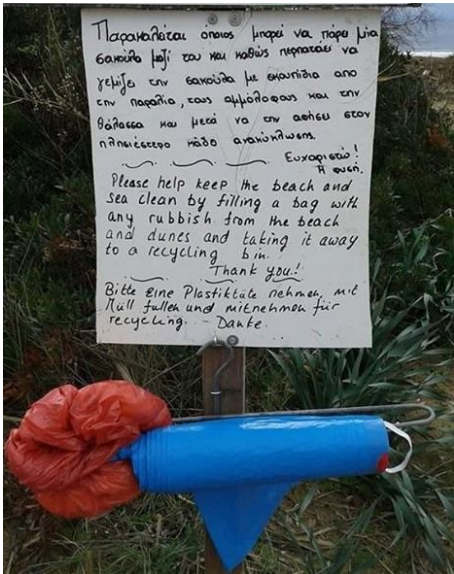 Παρακαλείται όποιος μπορεί να πάρει μία
σακούλα μαζί του και καθώς περπατάει να
γεμίζει την σακούλα με σκουπίδια απο
την παραλία, τους αμμόλοφους και την
θάλασσα και μετά να την αφήσει στον
πλησιέστερο κάδο ανακύκλωσης.
Ευχαριστώ!
Η φύση.
Please help keep the beach and
sea clean by filling a bag with
any rubbish from the beach
and dunes and taking it away
to a recycling bin.
Thank you!
Bitte eine Plastiktüte nehmen, mit
Müll fullen und mitnehmen für
recycling - Danke.